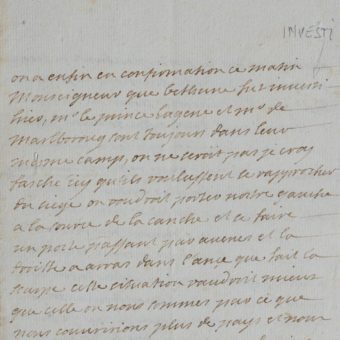 INVESTi
on a enfin eu confirmation ce matin
Monseigneur que bethune fut investi
hier, mr le prince Eugene et mr de
Marlboroug sont toujours dans leur
mesme camps, on ne seroit pas je croy
fasché icy qu'ils voulussent se rapprocher
du siege on voudroit porter nostre gauche
a la source de la canche et a faire
un poste passant par avenes et la
droitte a arras dans l'ance que fait la
scarpe cette situation vaudroit mieux
que celle ou nous sommes parce que
nous couvririons plus de pays et nour